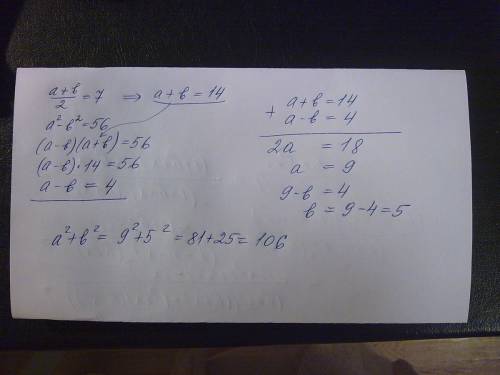 a+b/2 = 7 ⇒ a+b = 14
a²-b² = 56
(a-b)(a+b) = 56
(a-b)·14 = 56
a-b = 4
+ a+b = 14
a-b = 4
2a = 18
a = 9
9-b = 4
b = 9-4 = 5
a²+b² = 9²+5² = 81+25 = 106